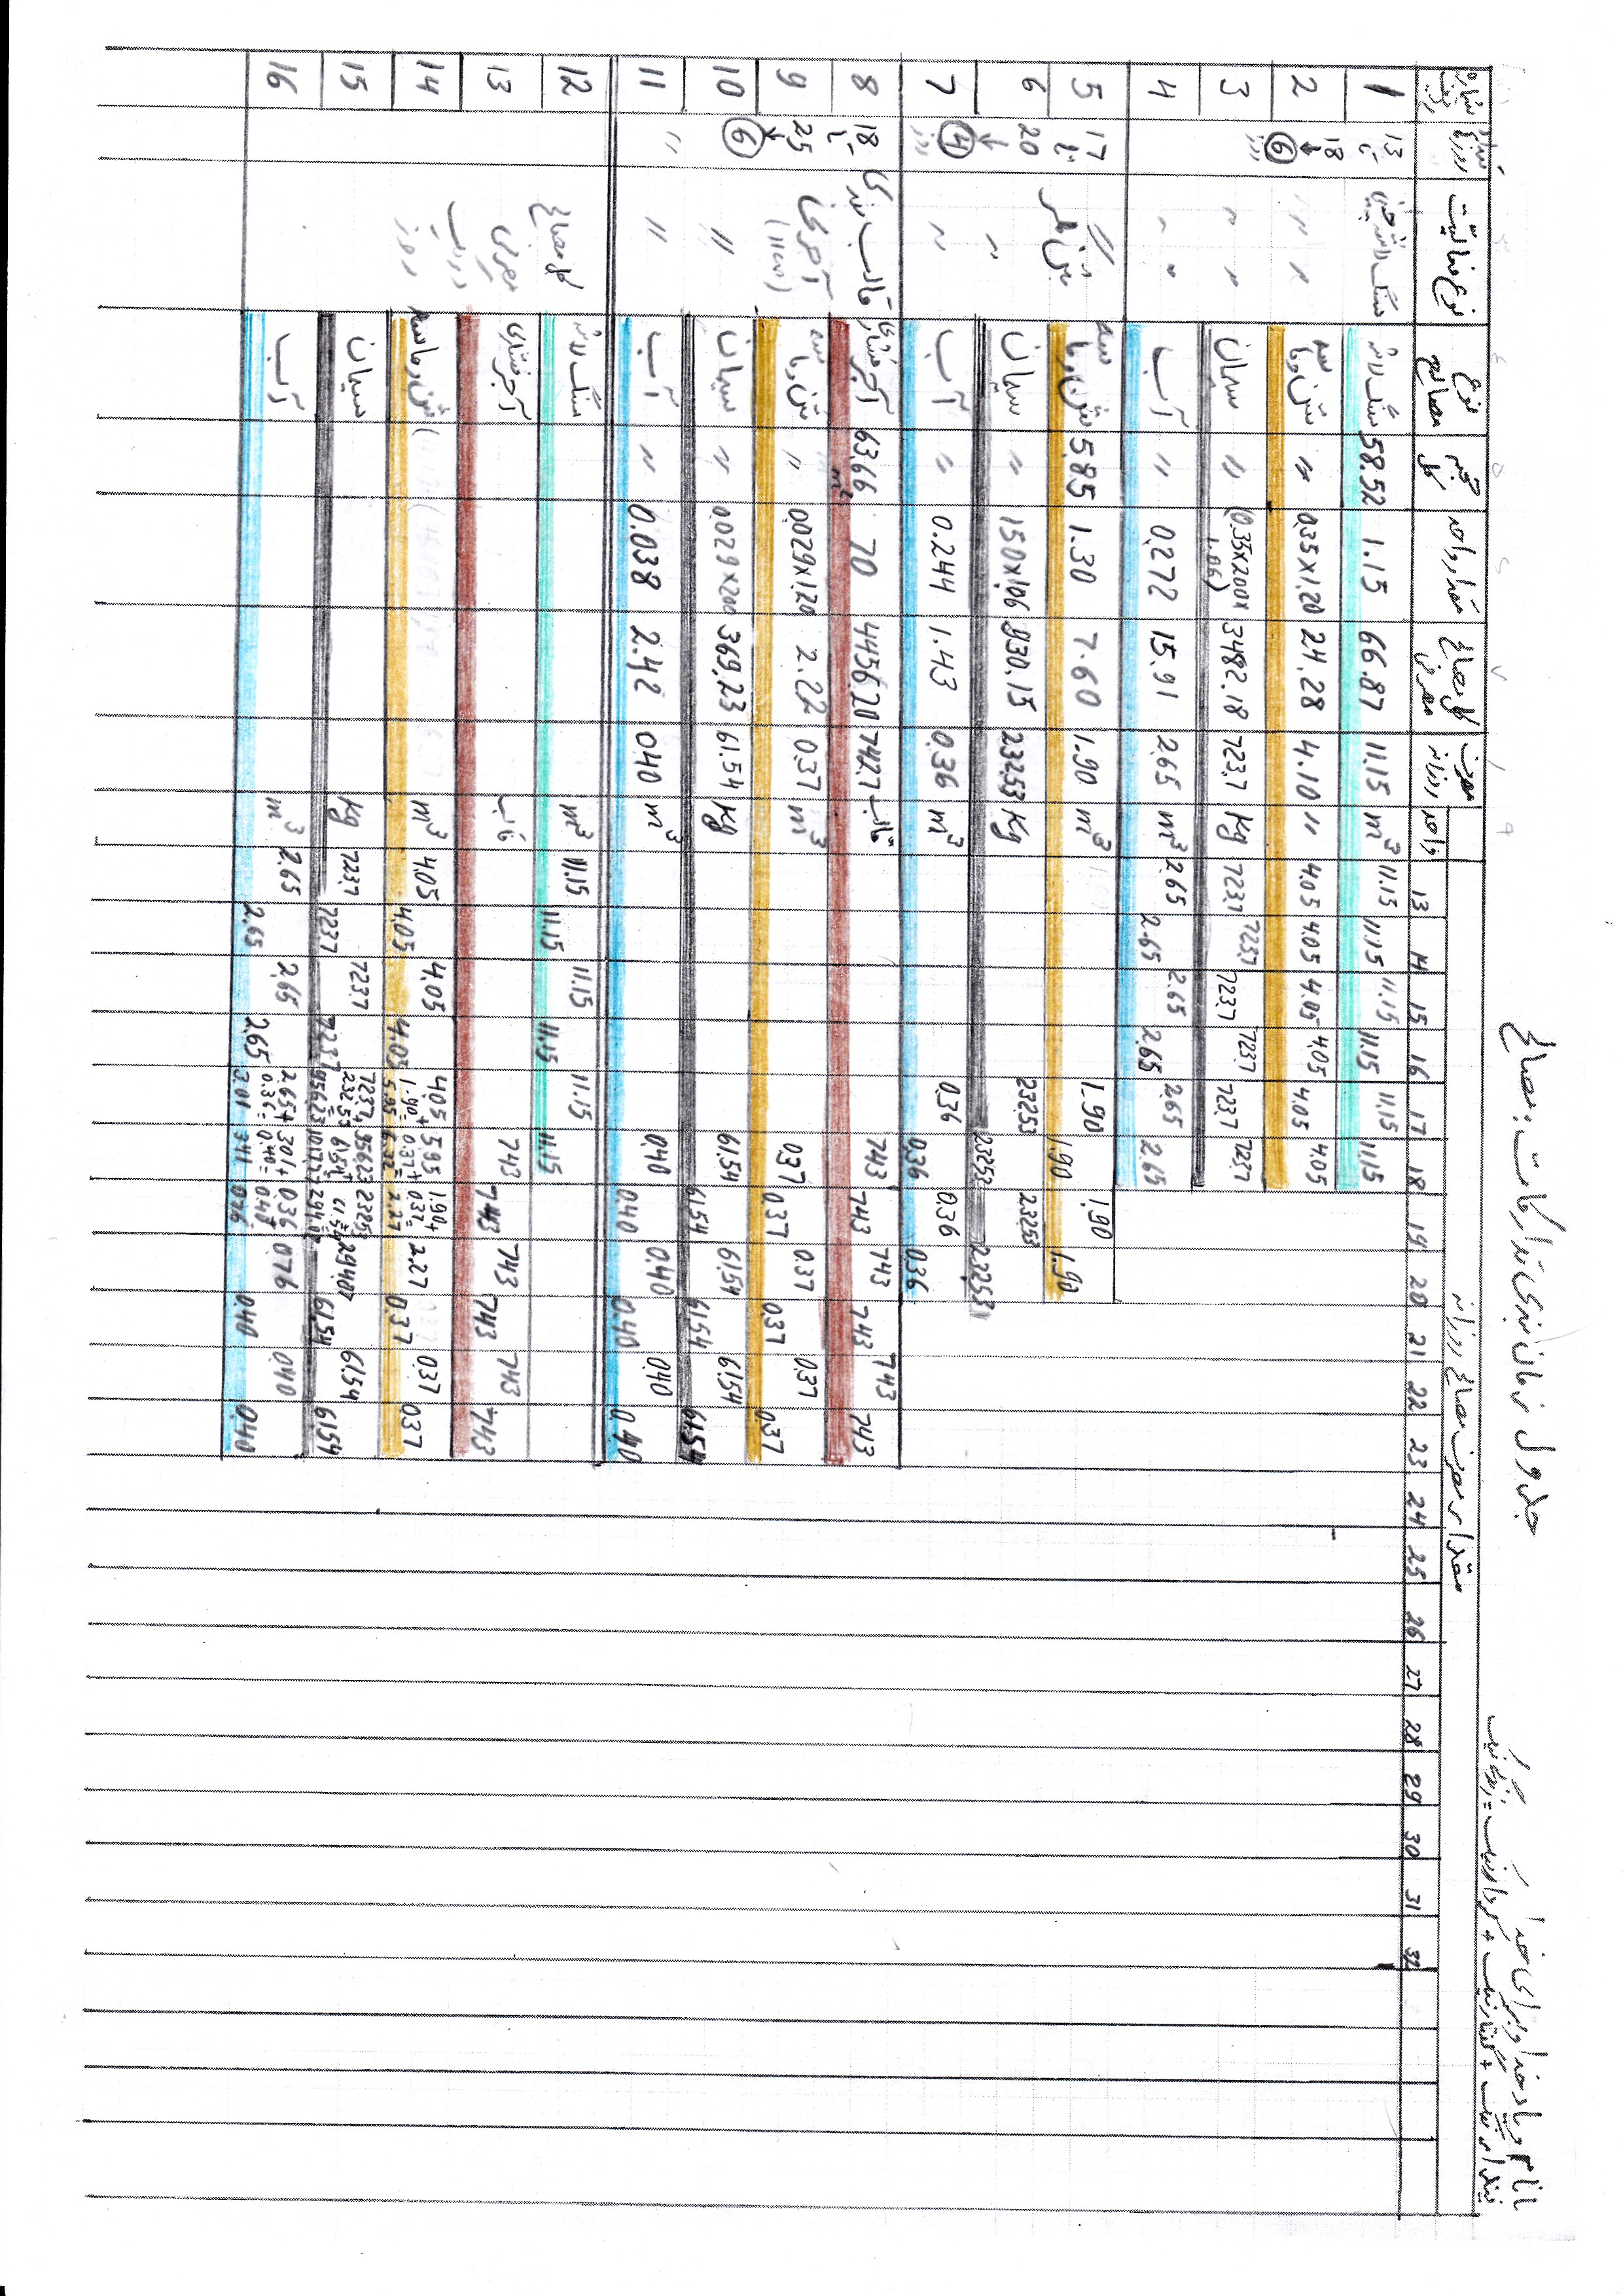 بنام و بیاد خدا و برای خدا
پندار نیک + گفتار نیک + کردار نیک = زندگی نیک
جدول زمان بندی تدارکات مصالح
شماره ردیف | تعداد روزها | نوع فعالیت | نوع مصالح | حجم کل | مقدار واحد | کل مصالح مصرفی | مصرف روزانه | واحد | مقدار مصرف مصالح روزانه
13 14 15 16 17 18 19 20 21 22 23 24 25 26 27 28 29 30 31 32
1 | 13 تا 18 ⑥ روز | سنگ لاشه چینی | سنگ لاشه | 58.52 | 1.15 | 66.87 | 11.15 | m³ | 11.15 | 11.15 | 11.15 | 11.15 | 11.15 | 11.15
2 | " | شن و ماسه | " | 0.35×1.20 | 24.28 | 4.10 | " | 4.05 | 4.05 | 4.05 | 4.05 | 4.05 | 4.05
3 | " | سیمان | " | (0.35×200×1.06) | 3482.18 | 723.7 | Kg | 723.7 | 723.7 | 723.7 | 723.7 | 723.7 | 723.7
4 | " | آب | " | 0.272 | 15.91 | 2.65 | m³ | 2.65 | 2.65 | 2.65 | 2.65 | 2.65 | 2.65
5 | 17 تا 20 ④ روز | بتن مگر | شن و ماسه | 5.85 | 1.30 | 7.60 | 1.90 | m³ | 1.90 | 1.90 | 1.90 | 1.90
6 | " | سیمان | " | 150×1.06 | 930.15 | 232.53 | Kg | 232.53 | 232.53 | 232.53 | 232.53
7 | " | آب | " | 0.244 | 1.43 | 0.36 | m³ | 0.36 | 0.36 | 0.36 | 0.36
8 | 18 تا 25 ⑥ | قالب بندی آجری | آجر فشاری | 63.66 m² | 70 | 4456.20 | 742.7 | قالب | 743 | 743 | 743 | 743 | 743 | 743
9 | شن و ماسه | " | 0.029×1.20 | 2.22 | 0.37 | m³ | 0.37 | 0.37 | 0.37 | 0.37 | 0.37 | 0.37
10 | " | سیمان | " | 0.029×200 | 369.23 | 61.54 | Kg | 61.54 | 61.54 | 61.54 | 61.54 | 61.54 | 61.54
11 | " | " | آب | " | 0.038 | 2.42 | 0.40 | m³ | 0.40 | 0.40 | 0.40 | 0.40 | 0.40 | 0.40
کل مصالح مصرفی در یک روز
12 | سنگ لاشه | m³ | 11.15 | 11.15 | 11.15 | 11.15 | 11.15 | 11.15
13 | آجر فشاری | قالب | 743 | 743 | 743 | 743 | 743 | 743
14 | شن و ماسه | m³ | 4.05 | 4.05 | 4.05 | 4.05 | 4.05+1.90=5.95 | 5.95+0.37=6.32 | 1.90+0.37=2.27 | 2.27 | 0.37 | 0.37 | 0.37
15 | سیمان | Kg | 723.7 | 723.7 | 723.7 | 723.7 | 723.7+232.53=956.23 | 956.23+61.54=1017.77 | 232.53+61.54=294.07 | 294.07 | 61.54 | 61.54 | 61.54
16 | آب | m³ | 2.65 | 2.65 | 2.65 | 2.65 | 2.65+0.36=3.01 | 3.01+0.40=3.41 | 0.36+0.40=0.76 | 0.76 | 0.40 | 0.40 | 0.40